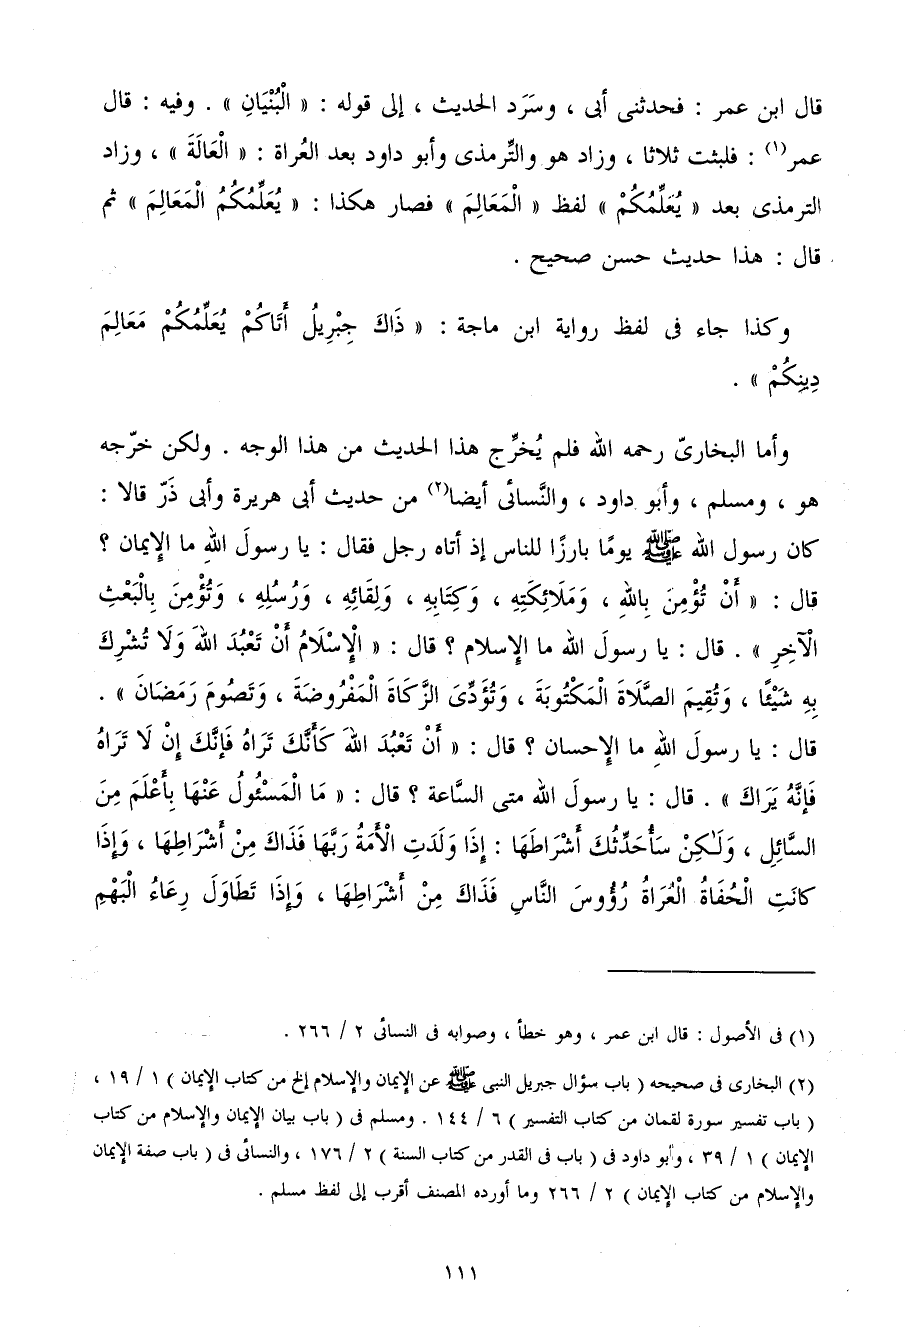 قال ابن عمر : فحدثنى أبى ، وسَرَد الحديث ، إلى قوله : « الْبُنْيَانِ » . وفيه : قال
عمر(١) : فلبثت ثلاثا ، وزاد هو والتِّرمذى وأبو داود بعد العُراة : « الْعَالَةَ » ، وزاد
الترمذى بعد « يُعَلِّمُكُمْ » لفظ « الْمَعَالِمَ » فصار هكذا : « يُعَلِّمُكُمُ الْمَعَالِمَ » ثم
قال : هذا حديث حسن صحيح .
وكذا جاء فى لفظ رواية ابن ماجة : « ذَاكَ جِبْرِيلُ أَتَاكُمْ يُعَلِّمُكُمْ مَعَالِمَ
دِينِكُمْ » .
وأما البخارىّ رحمه الله فلم يُخرِّج هذا الحديث من هذا الوجه . ولكن خرّجه
هو ، ومسلم ، وأبو داود ، والنَّسائى أيضا(٢) من حديث أبى هريرة وأبى ذَرّ قالا :
كان رسول الله ﷺ يومًا بارزًا للناس إذ أتاه رجل فقال : يا رسولَ اللهِ ما الإيمان ؟
قال : « أَنْ تُؤْمِنَ بِاللهِ ، وَمَلَائِكَتِهِ ، وَكِتَابِهِ ، وَلِقَائِهِ ، وَرُسُلِهِ ، وَتُؤْمِنَ بِالْبَعْثِ
الْآخِرِ » . قال : يا رسولَ الله ما الإسلام ؟ قال : « الْإِسْلَامُ أَنْ تَعْبُدَ اللهَ وَلَا تُشْرِكَ
بِهِ شَيْئًا ، وَتُقِيمَ الصَّلَاةَ الْمَكْتُوبَةَ ، وَتُؤَدِّىَ الزَّكَاةَ الْمَفْرُوضَةَ ، وَتَصُومَ رَمَضَانَ » .
قال : يا رسولَ اللهِ ما الإحسان ؟ قال : « أَنْ تَعْبُدَ اللهَ كَأَنَّكَ تَرَاهُ فَإِنَّكَ إِنْ لَا تَرَاهُ
فَإِنَّهُ يَرَاكَ » . قال : يا رسولَ الله متى السَّاعة ؟ قال : « مَا الْمَسْئُولُ عَنْهَا بِأَعْلَمَ مِنَ
السَّائِلِ ، وَلَكِنْ سَأُحَدِّثُكَ أَشْرَاطَهَا : إِذَا وَلَدَتِ الْأَمَةُ رَبَّهَا فَذَاكَ مِنْ أَشْرَاطِهَا ، وَإِذَا
كَانَتِ الْحُفَاةُ الْعُرَاةُ رُؤُوسَ النَّاسِ فَذَاكَ مِنْ أَشْرَاطِهَا ، وَإِذَا تَطَاوَلَ رِعَاءُ الْبَهْمِ
(١) فى الأصول : قال ابن عمر ، وهو خطأ ، وصوابه فى النسائى ٢ / ٢٦٦ .
(٢) البخارى فى صحيحه ( باب سؤال جبريل النبى ﷺ عن الإيمان والإسلام إلخ من كتاب الإيمان ) ١ / ١٩ ،
( باب تفسير سورة لقمان من كتاب التفسير ) ٦ / ١٤٤ . ومسلم فى ( باب بيان الإيمان والإسلام من كتاب
الإيمان ) ١ / ٣٩ ، وأبو داود فى ( باب فى القدر من كتاب السنة ) ٢ / ١٧٦ ، والنسائى فى ( باب صفة الإيمان
والإسلام من كتاب الإيمان ) ٢ / ٢٦٦ وما أورده المصنف أقرب إلى لفظ مسلم .
١١١